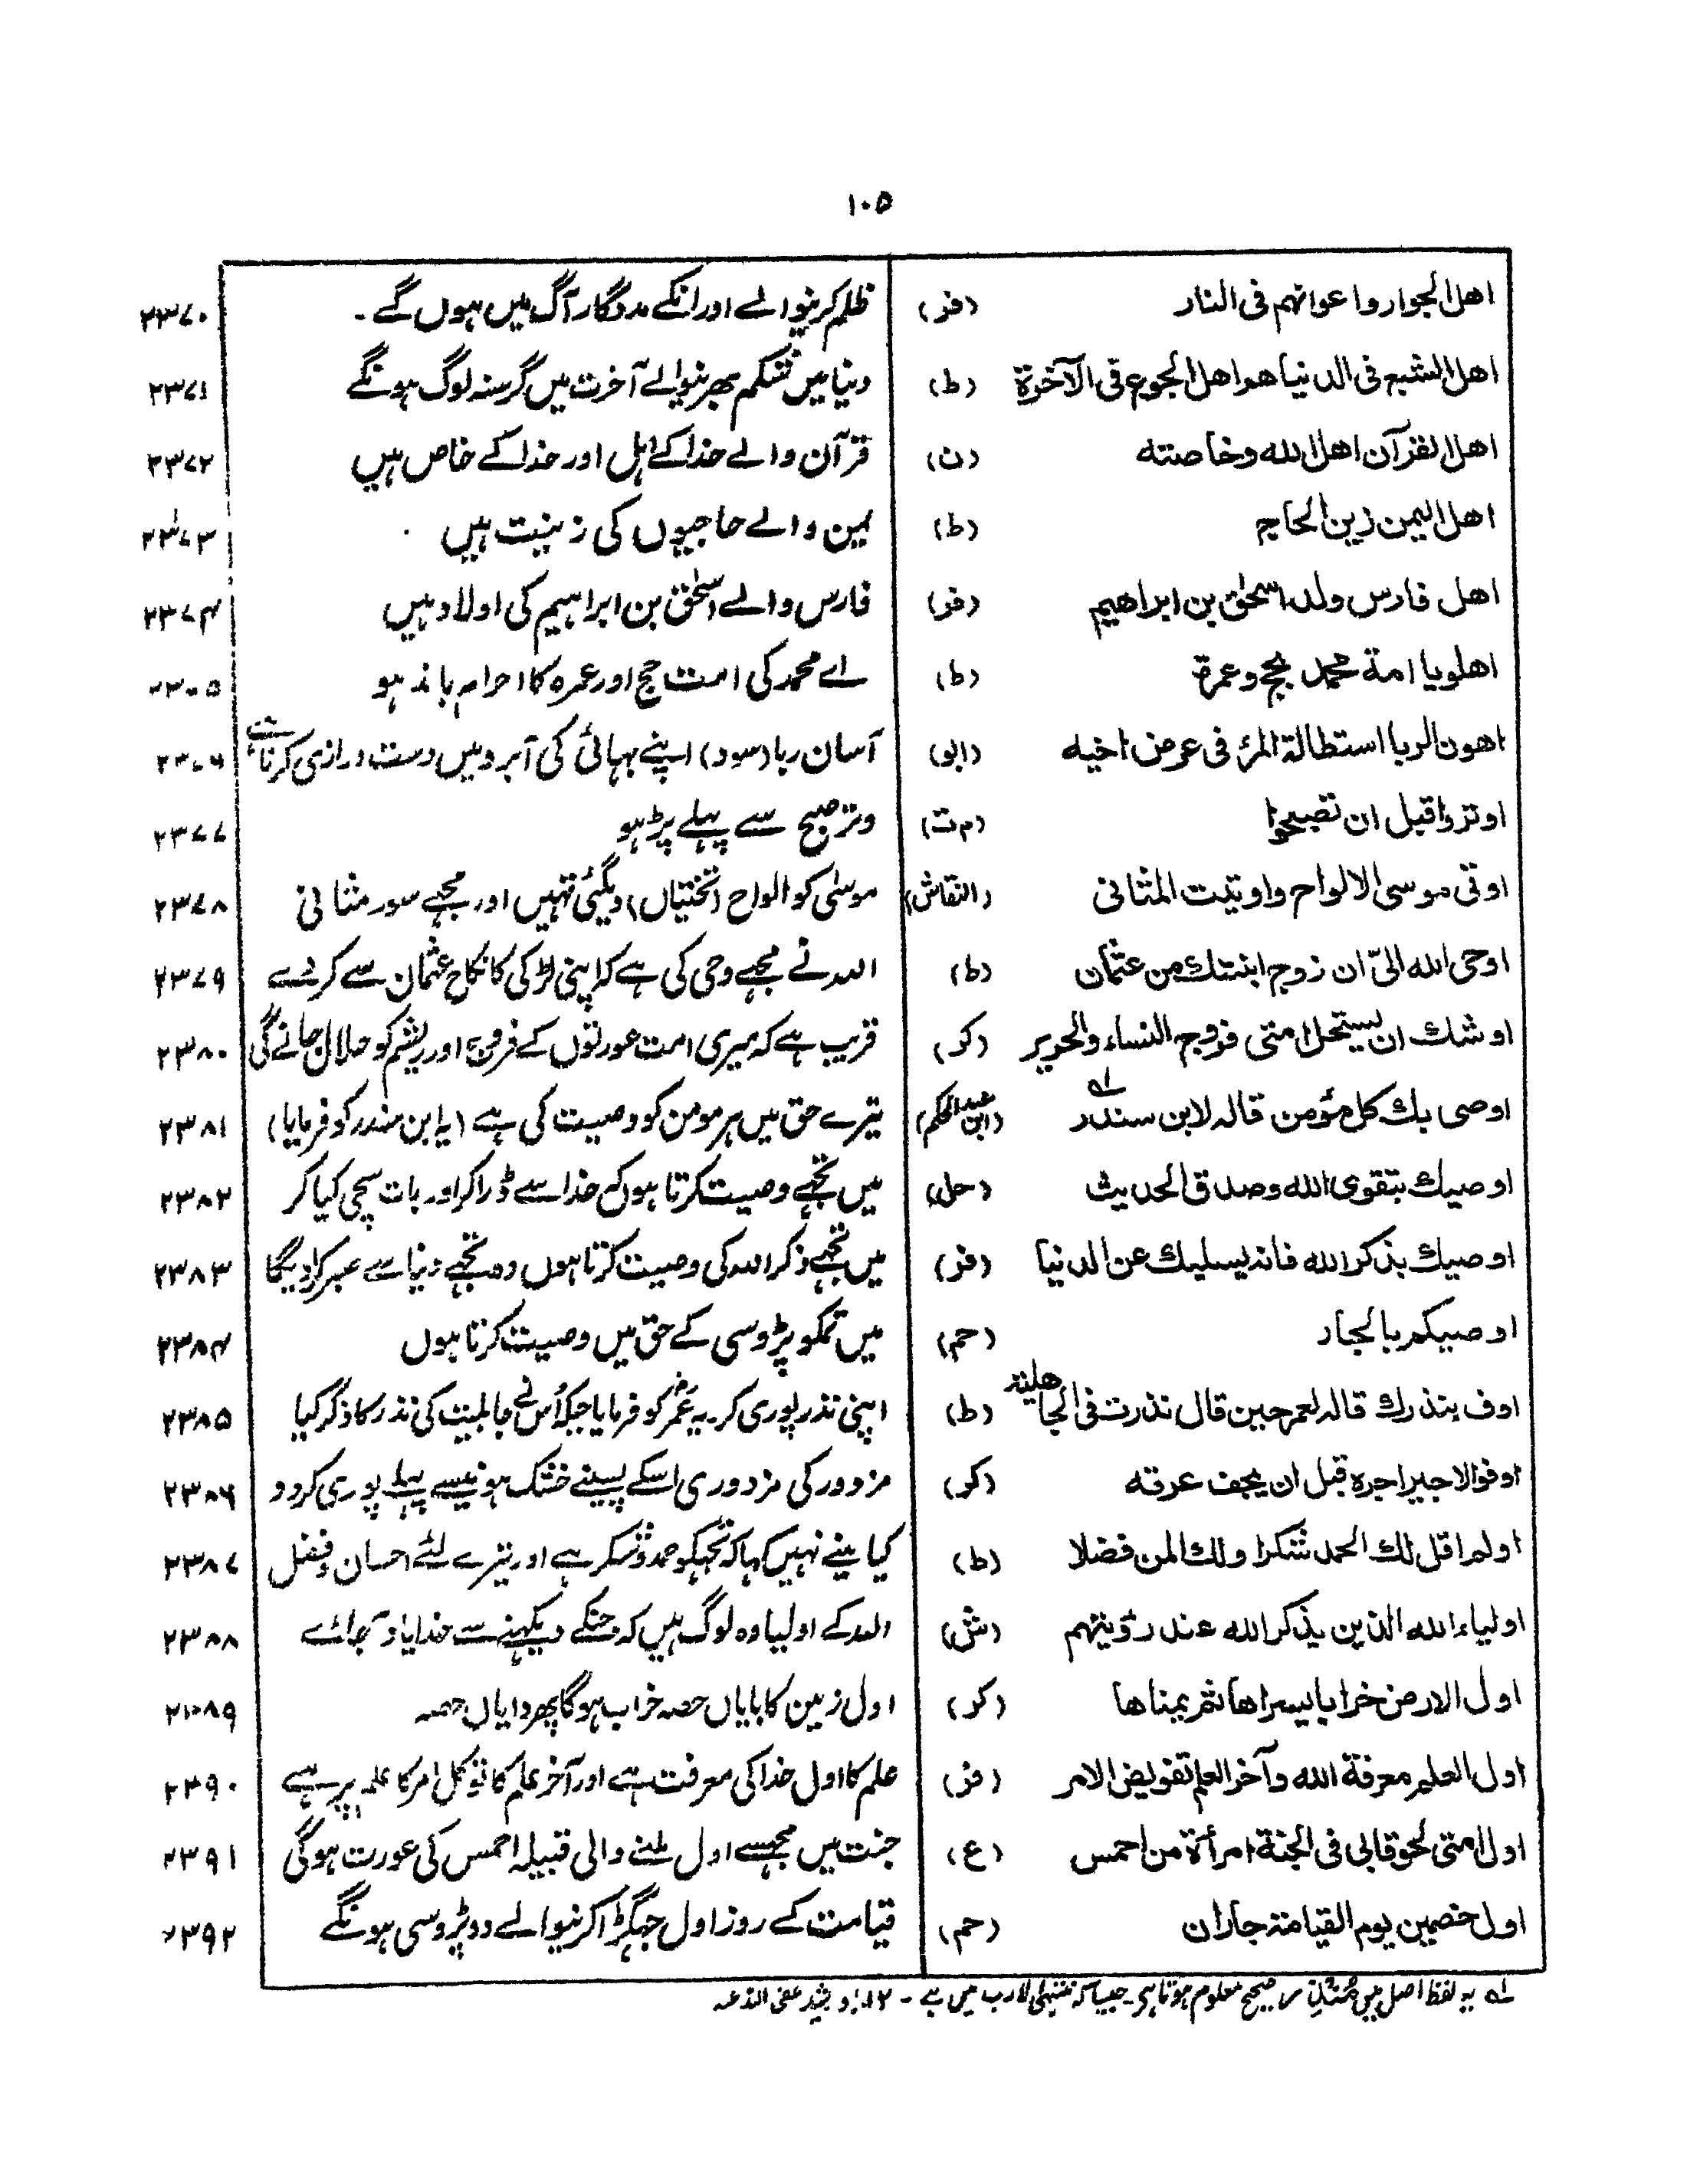 ۱۰۵
اهل الجوار واعوانهم فی النار (فر) ظلم کرنیوالے اور انکے مددگار آگ میں ہوں گے ۔ ۲۳۷۰
اهل الشبع فی الدنیا هم اهل الجوع فی الآخرة (ط) دنیا میں شکم بھرنیوالے آخرت میں گرسنہ لوگ ہونگے ۲۳۷۱
اهل القرآن اهل الله وخاصته (ن) قرآن والے خدا کے اہل اور خدا کے خاص ہیں ۲۳۷۲
اهل الیمن زین الحاج (ط) یمن والے حاجیوں کی زینت ہیں ۲۳۷۳
اهل فارس ولد اسحٰق بن ابراهیم (فر) فارس والے اسحٰق بن ابراہیم کی اولاد ہیں ۲۳۷۴
اهلو یا امة محمد بحج وعمرة (ط) اے محمد کی امت حج اور عمرہ کا احرام باندہو
اهون الربا استطالة المرء فی عرض اخیه (ابو) آسان ربا (سود) اپنے بہائی کی آبرو میں دست درازی کرنا ہے
اوتروا قبل ان تصبحوا (م ت) وتر صبح سے پہلے پڑہو ۲۳۷۷
اوتی موسی الالواح واوتیت المثانی (النقاش) موسٰی کو الواح (تختیاں) دیگئی تہیں اور مجہے سور مثانی ۲۳۷۸
اوحی الله الیّ ان زوج ابنتك من عثمان (ط) اللہ نے مجہے وحی کی ہے کہ اپنی لڑکی کا نکاح عثمان سے کردے ۲۳۷۹
اوشك ان یستحل امتی فروج النساء والحریر (کر) قریب ہے کہ میری امت عورتوں کے فروج اور ریشم کو حلال جانے گی ۲۳۸۰
اوصی بك کل مؤمن قاله لابن سندر ؎۱ (ابن عبد الحکم) تیرے حق میں ہر مومن کو وصیت کی ہے (یہ ابن سندر کو فرمایا) ۲۳۸۱
اوصیك بتقوی الله وصدق الحدیث (حل) میں تجہے وصیت کرتا ہوں کہ خدا سے ڈرا کر اور بات سچی کیا کر ۲۳۸۲
اوصیك بذکر الله فانه یسلیك عن الدنیا (فر) میں تجہے ذکر اللہ کی وصیت کرتا ہوں وہ تجہے دنیا سے صبر کرا دیگا ۲۳۸۳
اوصیکم بالجار (حم) میں تمکو پڑوسی کے حق میں وصیت کرتا ہوں ۲۳۸۴
اوف بنذرك قاله لعمر حین قال نذرت فی الجاهلیة (ط) اپنی نذر پوری کر ۔ یہ عمرؓ کو فرمایا جبکہ اُس نے جاہلیت کی نذر کا ذکر کیا ۲۳۸۵
اوفوا الاجیر اجره قبل ان یجف عرقه (کر) مزدور کی مزدوری اسکے پسینے خشک ہونیسے پہلے پوری کردو ۲۳۸۶
اولم اقل لك الحمد شکرا ولك المن فضلا (ط) کیا مینے نہیں کہا کہ تجہکو حمد و شکر ہے اور تیرے لئے احسان و فضل ۲۳۸۷
اولیاء الله الذین یذکر الله عند رؤیتهم (ش) اللہ کے اولیا وہ لوگ ہیں کہ جنکے دیکہنے سے خدا یاد آجائے ۲۳۸۸
اول الارض خرابا یسراها ثم یمناها (کر) اول زمین کا بایاں حصہ خراب ہوگا پھر دایاں حصہ ۲۳۸۹
اول العلم معرفة الله وآخر العلم تفویض الامر (فر) علم کا اول خدا کی معرفت ہے اور آخر علم کا توکل امر کا پر ہے ۲۳۹۰
اول امتی لحوقا بی فی الجنة امرأة من احمس (ع) جنت میں مجہسے اول ملنے والی قبیلہ احمس کی عورت ہوگی ۲۳۹۱
اول خصمین یوم القیامة جاران (حم) قیامت کے روز اول جہگڑا کرنیوالے دو پڑوسی ہونگے ۲۳۹۲
؎۱ یہ لفظ اصل میں صحیح معلوم ہوتا ہے جیسا کہ منتہی الارب میں ہے ۔ ۱۲ عفی اللہ عنہ